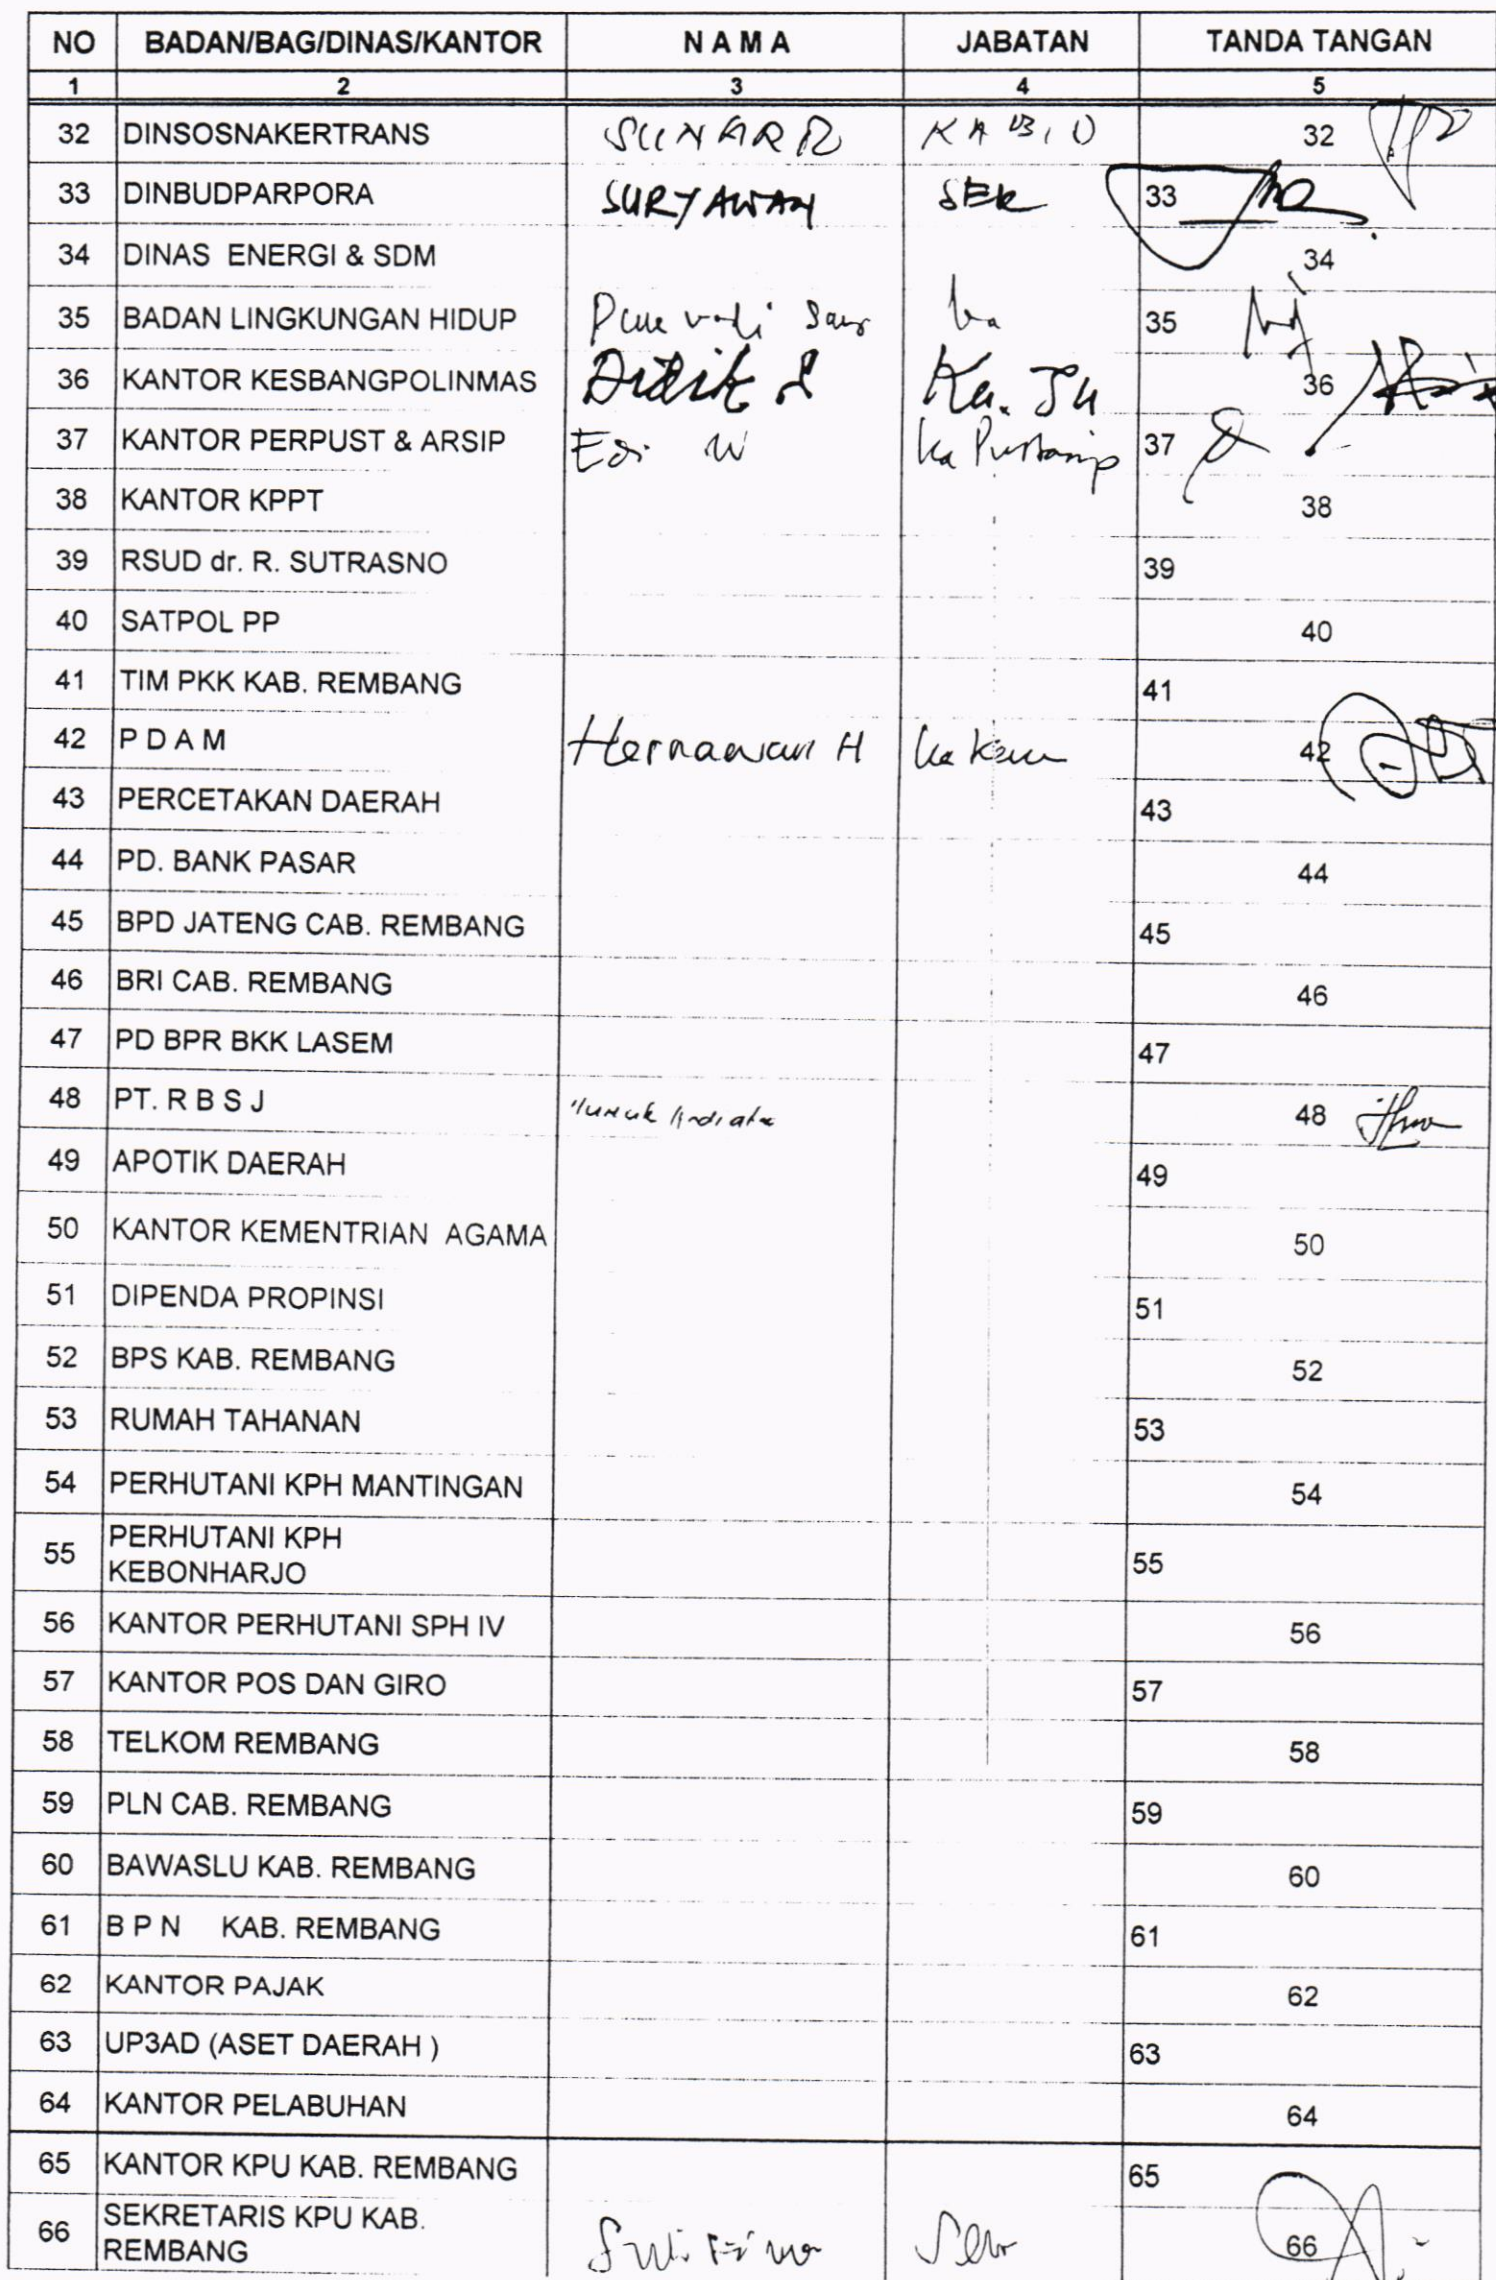 NO BADAN/BAG/DINAS/KANTOR N A M A JABATAN TANDA TANGAN
1 2 3 4 5
32 DINSOSNAKERTRANS SUNARR KABID 32
33 DINBUDPARPORA SURYAWAN SEK 33
34 DINAS ENERGI & SDM 34
35 BADAN LINGKUNGAN HIDUP ka 35
36 KANTOR KESBANGPOLINMAS Didik S Ka. TU 36
37 KANTOR PERPUST & ARSIP Edi W ka Pustarsip 37
38 KANTOR KPPT 38
39 RSUD dr. R. SUTRASNO 39
40 SATPOL PP 40
41 TIM PKK KAB. REMBANG 41
42 P D A M Hernawan H 42
43 PERCETAKAN DAERAH 43
44 PD. BANK PASAR 44
45 BPD JATENG CAB. REMBANG 45
46 BRI CAB. REMBANG 46
47 PD BPR BKK LASEM 47
48 PT. R B S J 48
49 APOTIK DAERAH 49
50 KANTOR KEMENTRIAN AGAMA 50
51 DIPENDA PROPINSI 51
52 BPS KAB. REMBANG 52
53 RUMAH TAHANAN 53
54 PERHUTANI KPH MANTINGAN 54
55 PERHUTANI KPH
KEBONHARJO 55
56 KANTOR PERHUTANI SPH IV 56
57 KANTOR POS DAN GIRO 57
58 TELKOM REMBANG 58
59 PLN CAB. REMBANG 59
60 BAWASLU KAB. REMBANG 60
61 B P N KAB. REMBANG 61
62 KANTOR PAJAK 62
63 UP3AD (ASET DAERAH ) 63
64 KANTOR PELABUHAN 64
65 KANTOR KPU KAB. REMBANG 65
66 SEKRETARIS KPU KAB.
REMBANG 66